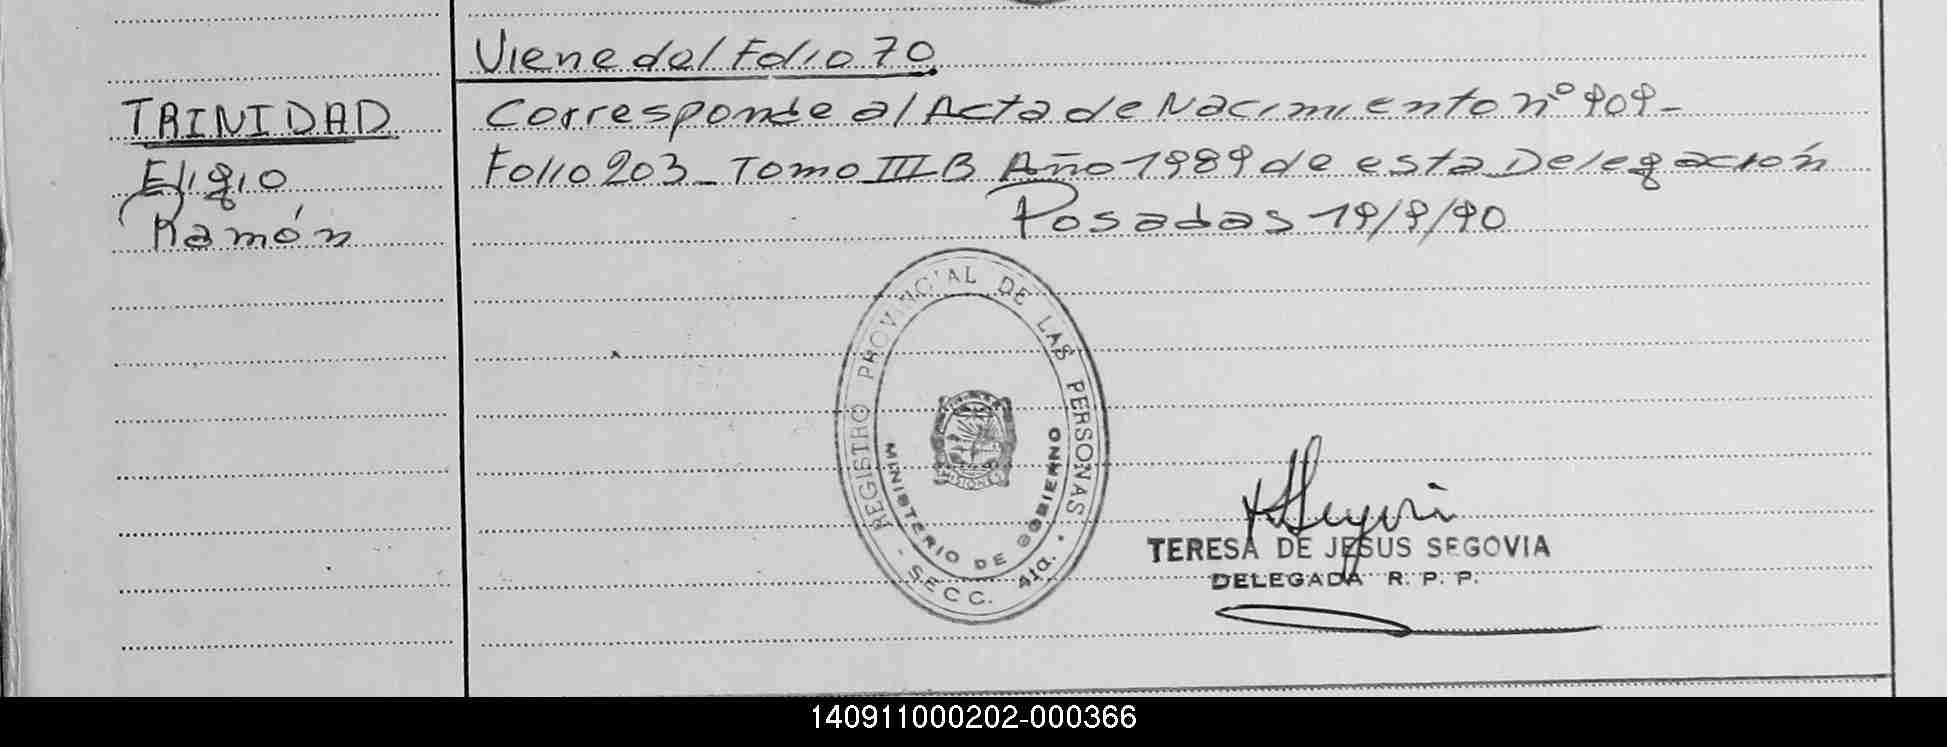 Viene del Folio 70
TRINIDAD
Eligio
Ramón
Corresponde al Acta de Nacimiento nº 909-
Folio 203_ Tomo III B Año 1989 de esta Delegación
Posadas 19/9/90
REGISTRO PROVINCIAL DE LAS PERSONAS
- SECC. 4ta. •
MINISTERIO DE GOBIERNO
MISIONES
TERESA DE JESUS SEGOVIA
DELEGADA R. P. P.
140911000202-000366